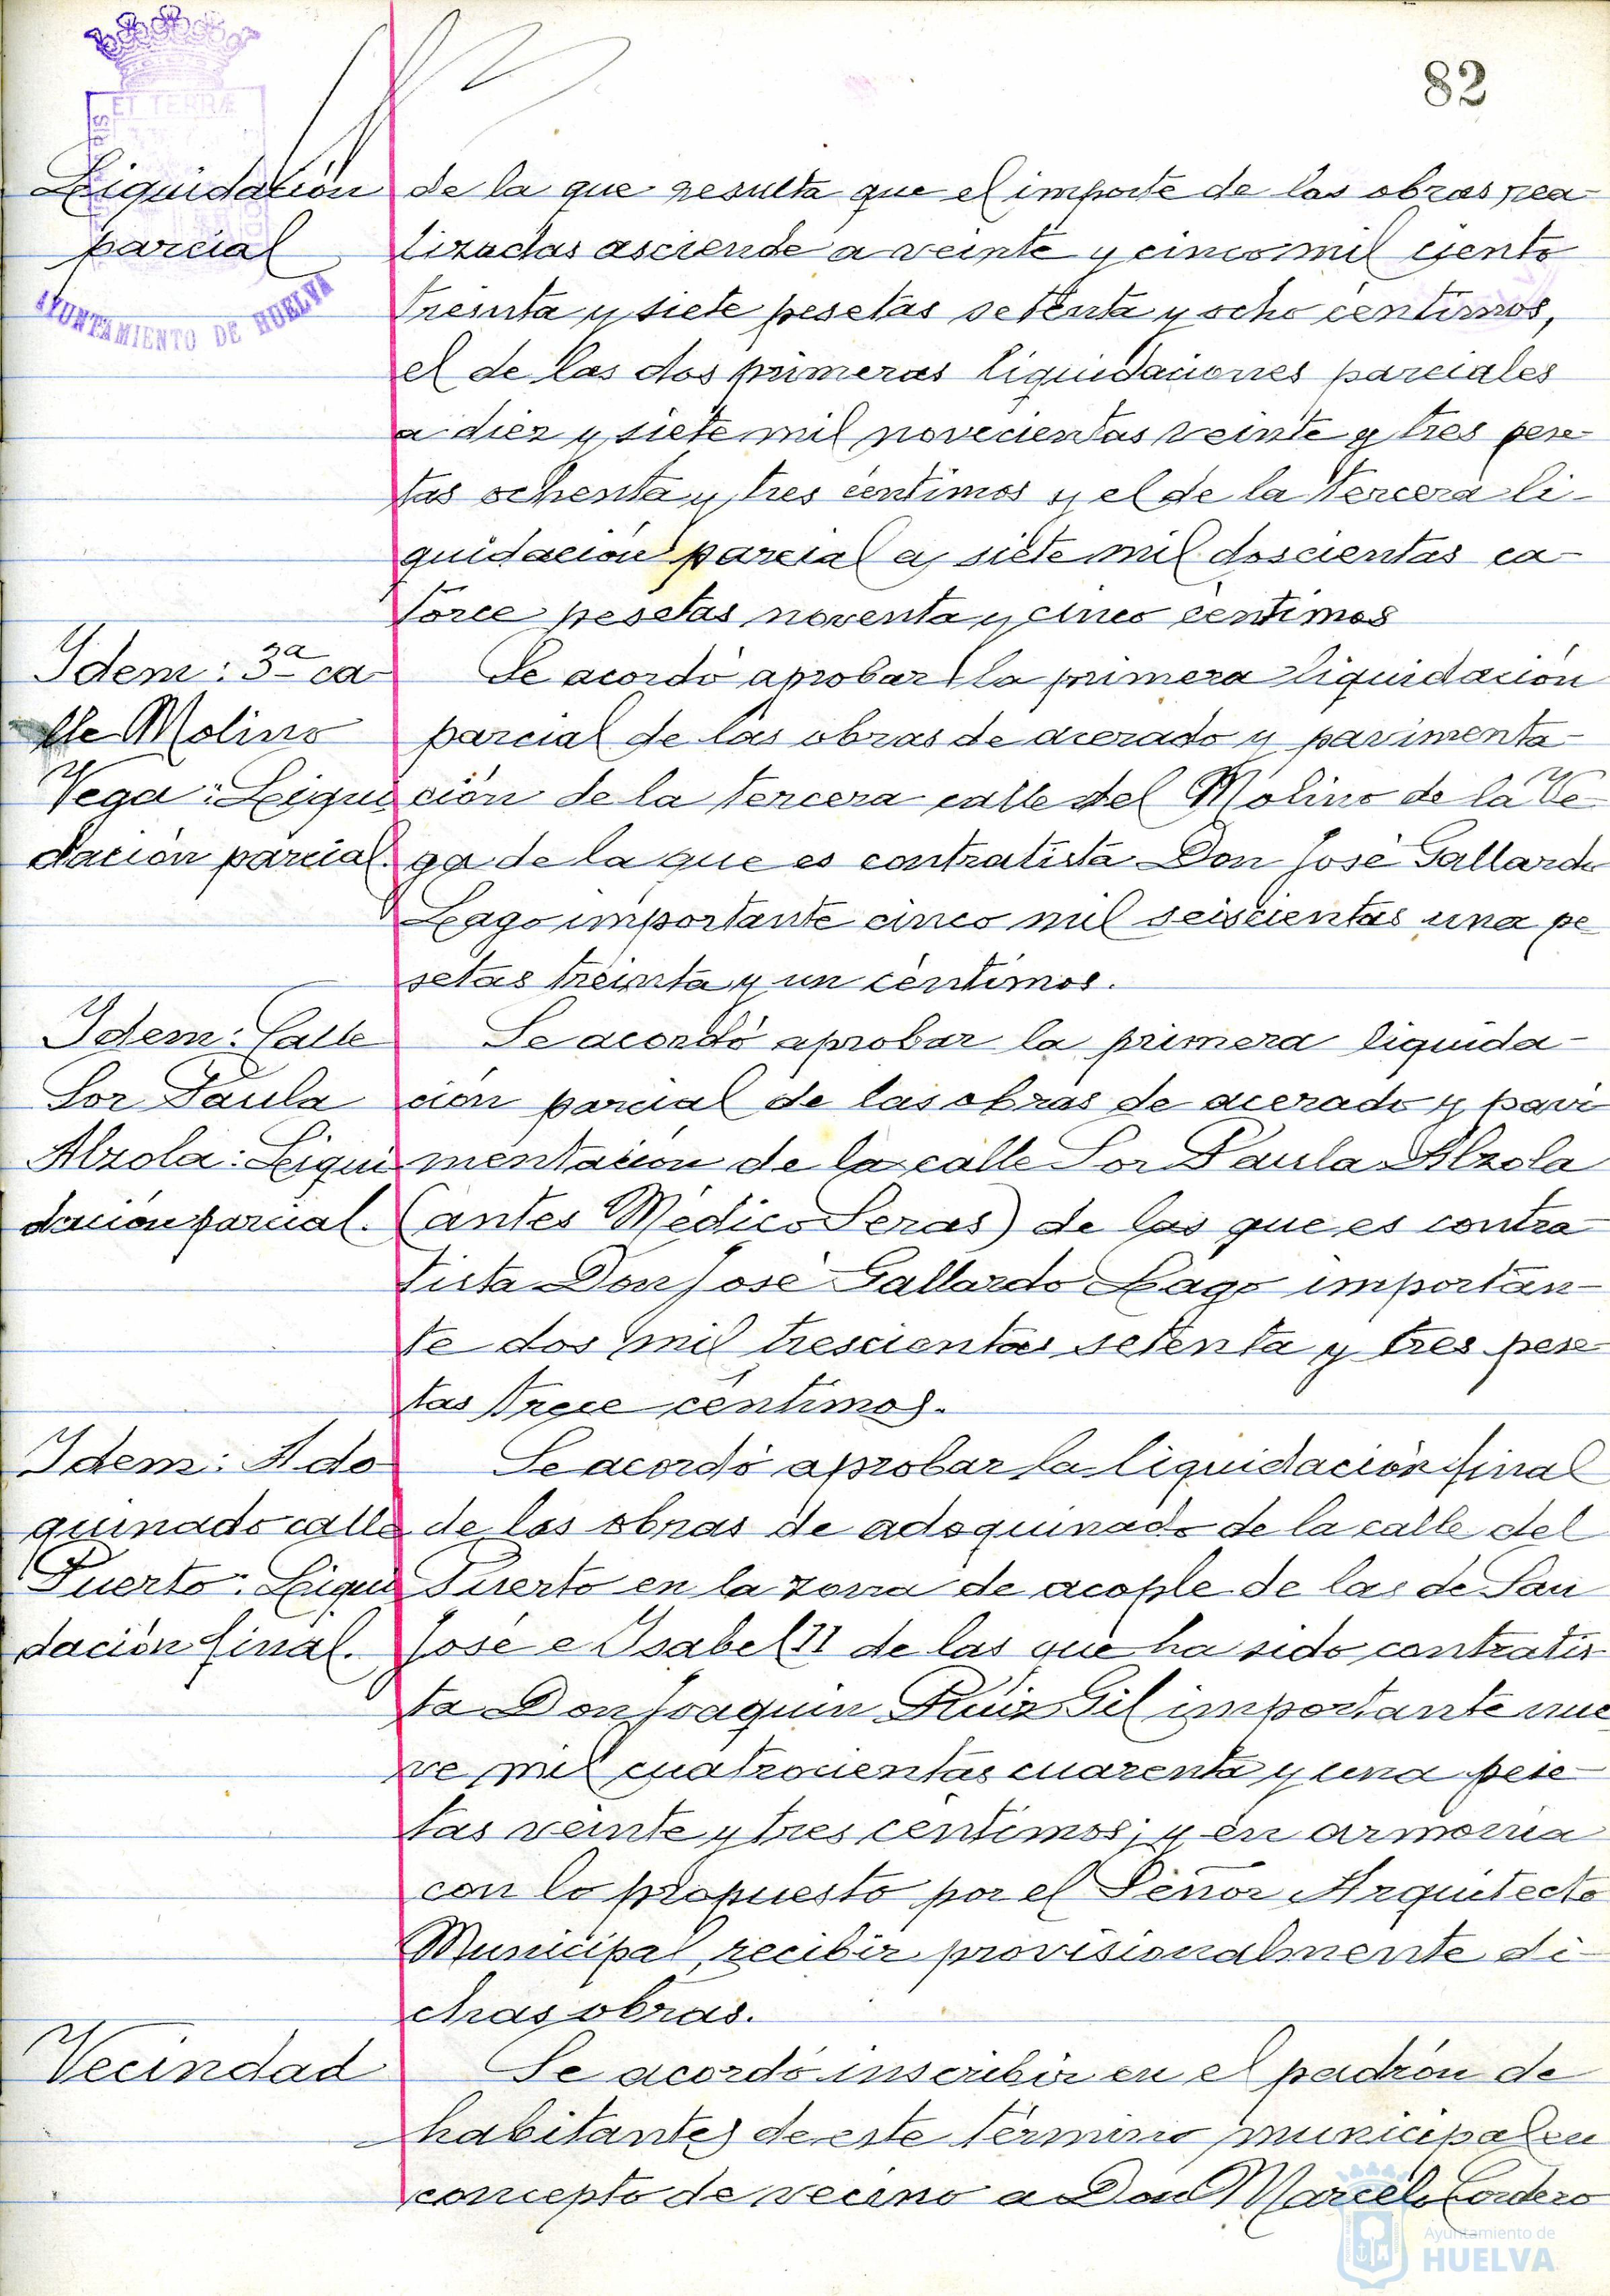 82
ET TERRÆ
Liquidación
parcial
AYUNTAMIENTO DE HUELVA
de la que resulta que el importe de las obras rea-
lizadas asciende a veinte y cinco mil ciento
treinta y siete pesetas setenta y ocho centimos,
el de las dos primeras liquidaciones parciales
a diez y siete mil novecientas veinte y tres pese-
tas ochenta y tres centimos y el de la tercera li-
quidación parcial a siete mil doscientas ca-
torce pesetas noventa y cinco centimos
Idem: 3ª ca-
lle Molino
Vega: Liqui
dación parcial.
Se acordó aprobar la primera liquidación
parcial de las obras de acerado y pavimenta-
ción de la tercera calle del Molino de la Ve-
ga de la que es contratista Don José Gallardo
Lago importante cinco mil seiscientas una pe
setas treinta y un centimos.
Idem: Calle
Sor Paula
Alzola: Liqui
dación parcial.
Se acordó aprobar la primera liquida-
ción parcial de las obras de acerado y pavi
mentación de la calle Sor Paula Alzola
(antes Médico Seras) de las que es contra
tista Don José Gallardo Lago importan-
te dos mil trescientas setenta y tres pese-
tas trece centimos.
Idem: Ado
quinado calle
Puerto: Liqui
dación final.
Se acordó aprobar la liquidación final
de las obras de adoquinado de la calle del
Puerto en la zona de acople de las de San
José e Isabel II de las que ha sido contratis
ta Don Joaquin Ruiz Gil importante nue
ve mil cuatrocientas cuarenta y una pese-
tas veinte y tres centimos; y en armonia
con lo propuesto por el Señor Arquitecto
Municipal, recibir provisionalmente di-
chas obras.
Vecindad
Se acordó inscribir en el padrón de
habitantes de este término municipal en
concepto de vecino a Don Marcelo Cordero
Ayuntamiento de
HUELVA